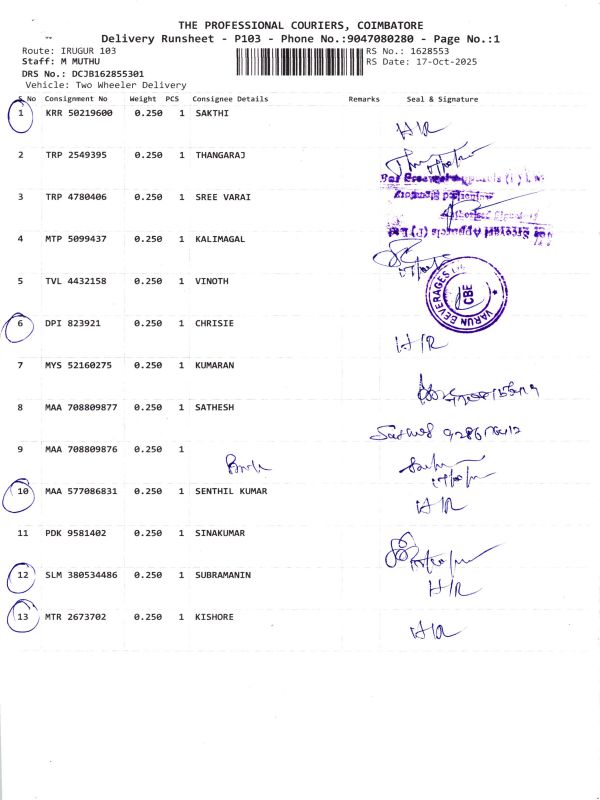 THE PROFESSIONAL COURIERS, COIMBATORE
Delivery Runsheet - P103 - Phone No.:9047080280 - Page No.:1
Route: IRUGUR 103
RS No.: 1628553
Staff: M MUTHU
RS Date: 17-Oct-2025
DRS No.: DCJB162855301
Vehicle: Two Wheeler Delivery
S.No Consignment No Weight PCS Consignee Details Remarks Seal & Signature
1 KRR 50219600 0.250 1 SAKTHI
H/R
2 TRP 2549395 0.250 1 THANGARAJ
3 TRP 4780406 0.250 1 SREE VARAI
Authorised Signatory
4 MTP 5099437 0.250 1 KALIMAGAL
5 TVL 4432158 0.250 1 VINOTH
VARUN BEVERAGES
CBE
6 DPI 823921 0.250 1 CHRISIE
H/R
7 MYS 52160275 0.250 1 KUMARAN
8 MAA 708809877 0.250 1 SATHESH
9 MAA 708809876 0.250 1
10 MAA 577086831 0.250 1 SENTHIL KUMAR
H/R
11 PDK 9581402 0.250 1 SINAKUMAR
12 SLM 380534486 0.250 1 SUBRAMANIN
H/R
13 MTR 2673702 0.250 1 KISHORE
H/R